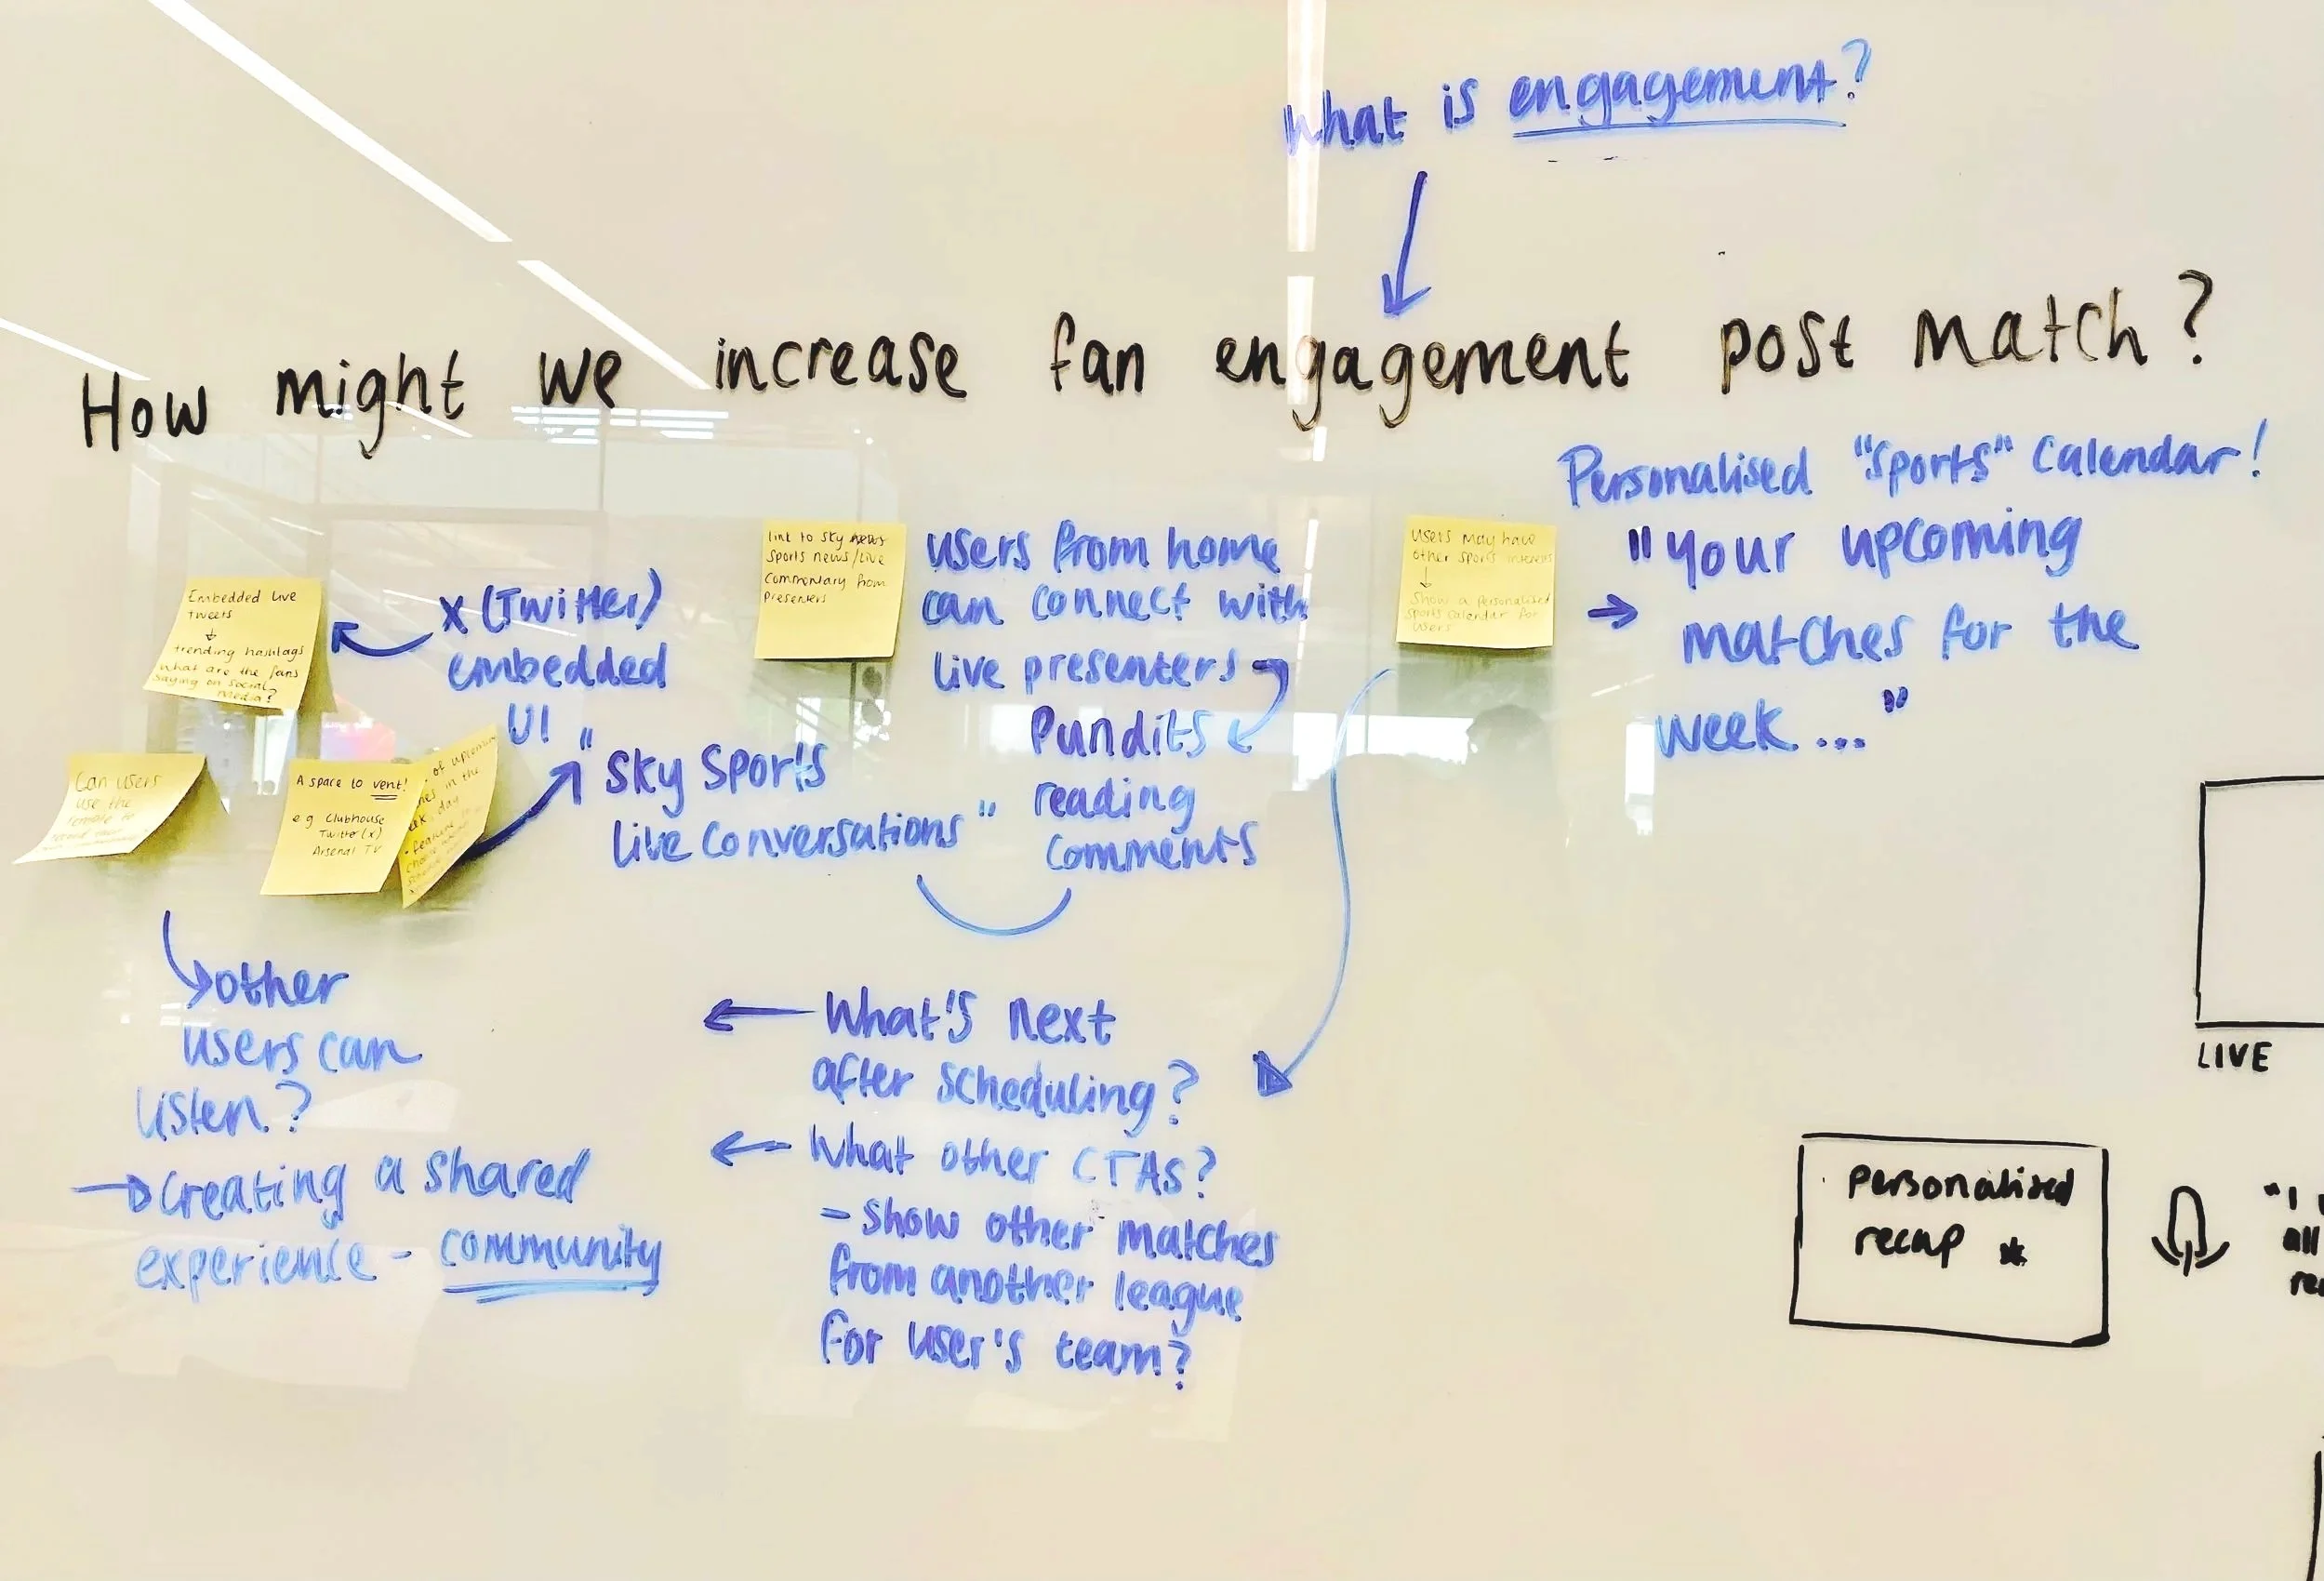 What is engagement?
How might we increase fan engagement post match?
Embedded live
tweets
↓
trending hashtags
What are the fans
saying on social
media?
X (Twitter)
embedded
UI
Can users
use the
remote to
A space to vent!
e.g Clubhouse
Twitter (x)
Arsenal TV
of upcoming
in the
day
"Sky Sports
live conversations"
link to Sky
sports news/live
commentary from
presenters
users from home
can connect with
live presenters
Pundits
reading
comments
users may have
other sports interests
↓
Show a personalised
sports calendar for
users
Personalised "Sports" Calendar!
→ "Your upcoming
matches for the
week..."
→ other
users can
listen?
→ Creating a shared
experience - community
← What's next
after scheduling?
← What other CTAs?
- Show other matches
from another league
for user's team?
LIVE
personalised
recap *
"I
all